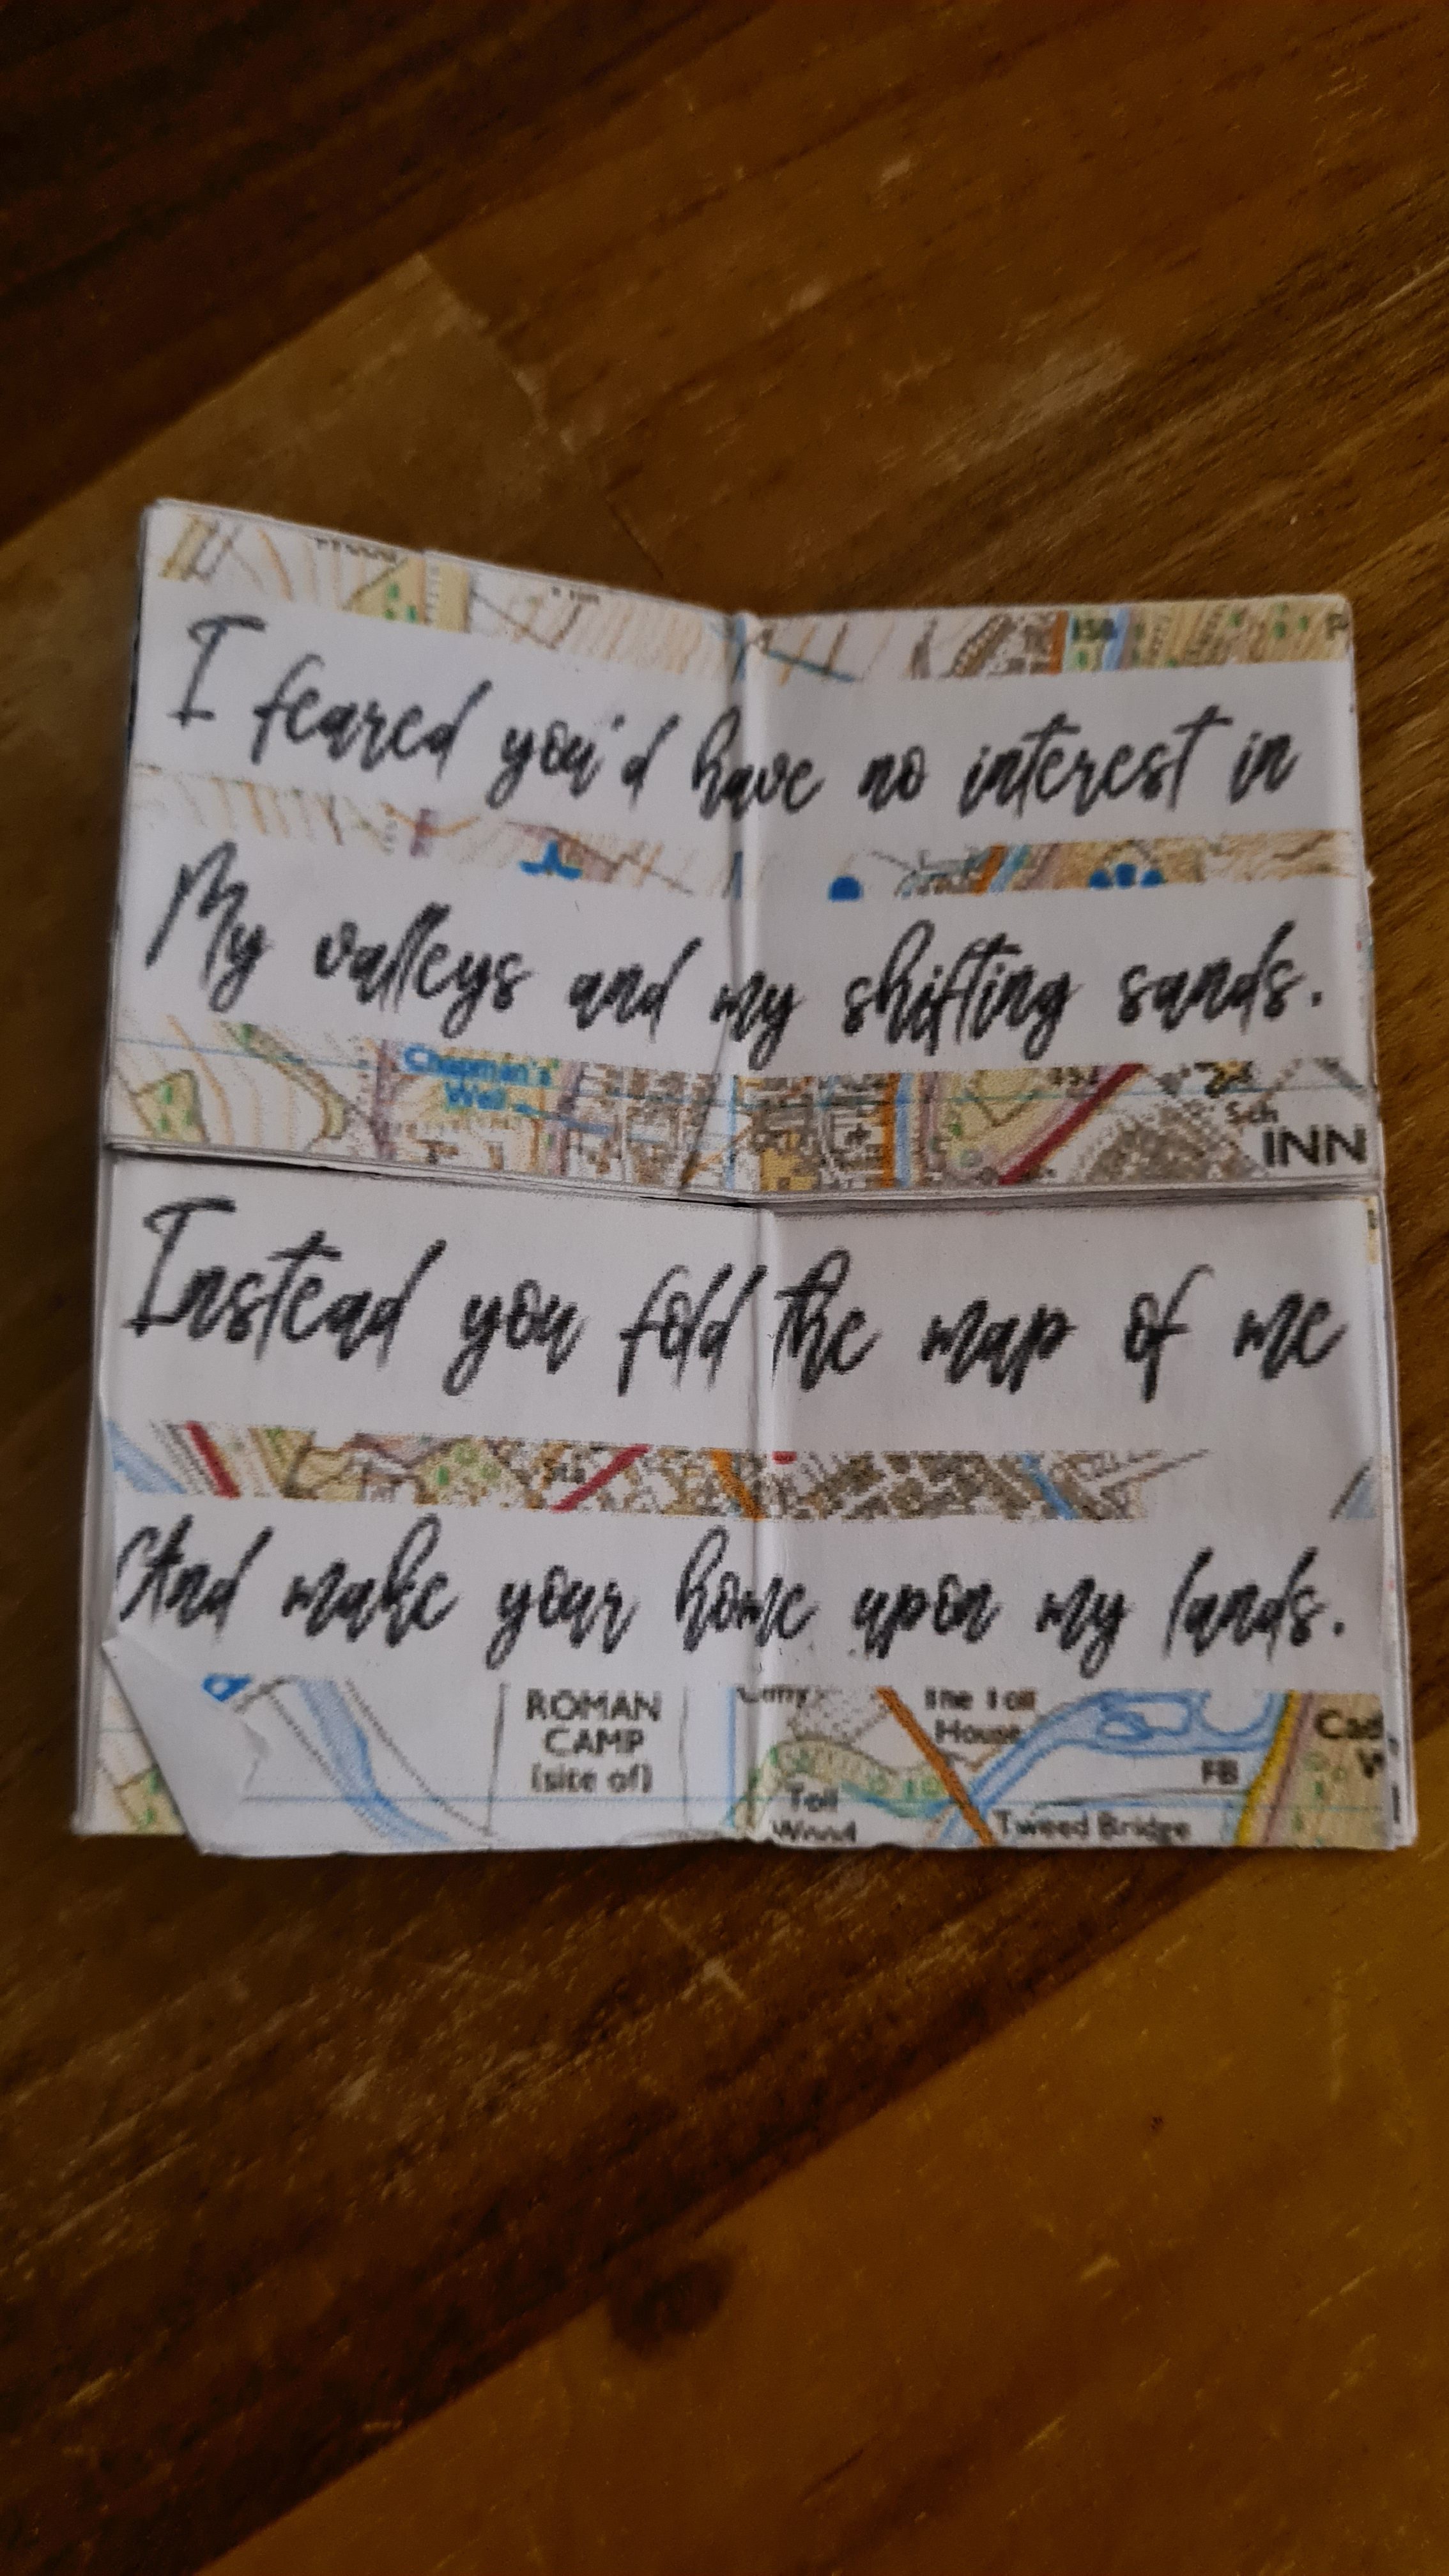 I feared you'd have no interest in
My valleys and my shifting sands.
Chapman's
Well
Sch
INN
Instead you fold the map of me
And make your home upon my lands.
ROMAN
CAMP
(site of)
The Toll
House
FB
Toll
Wood
Tweed Bridge